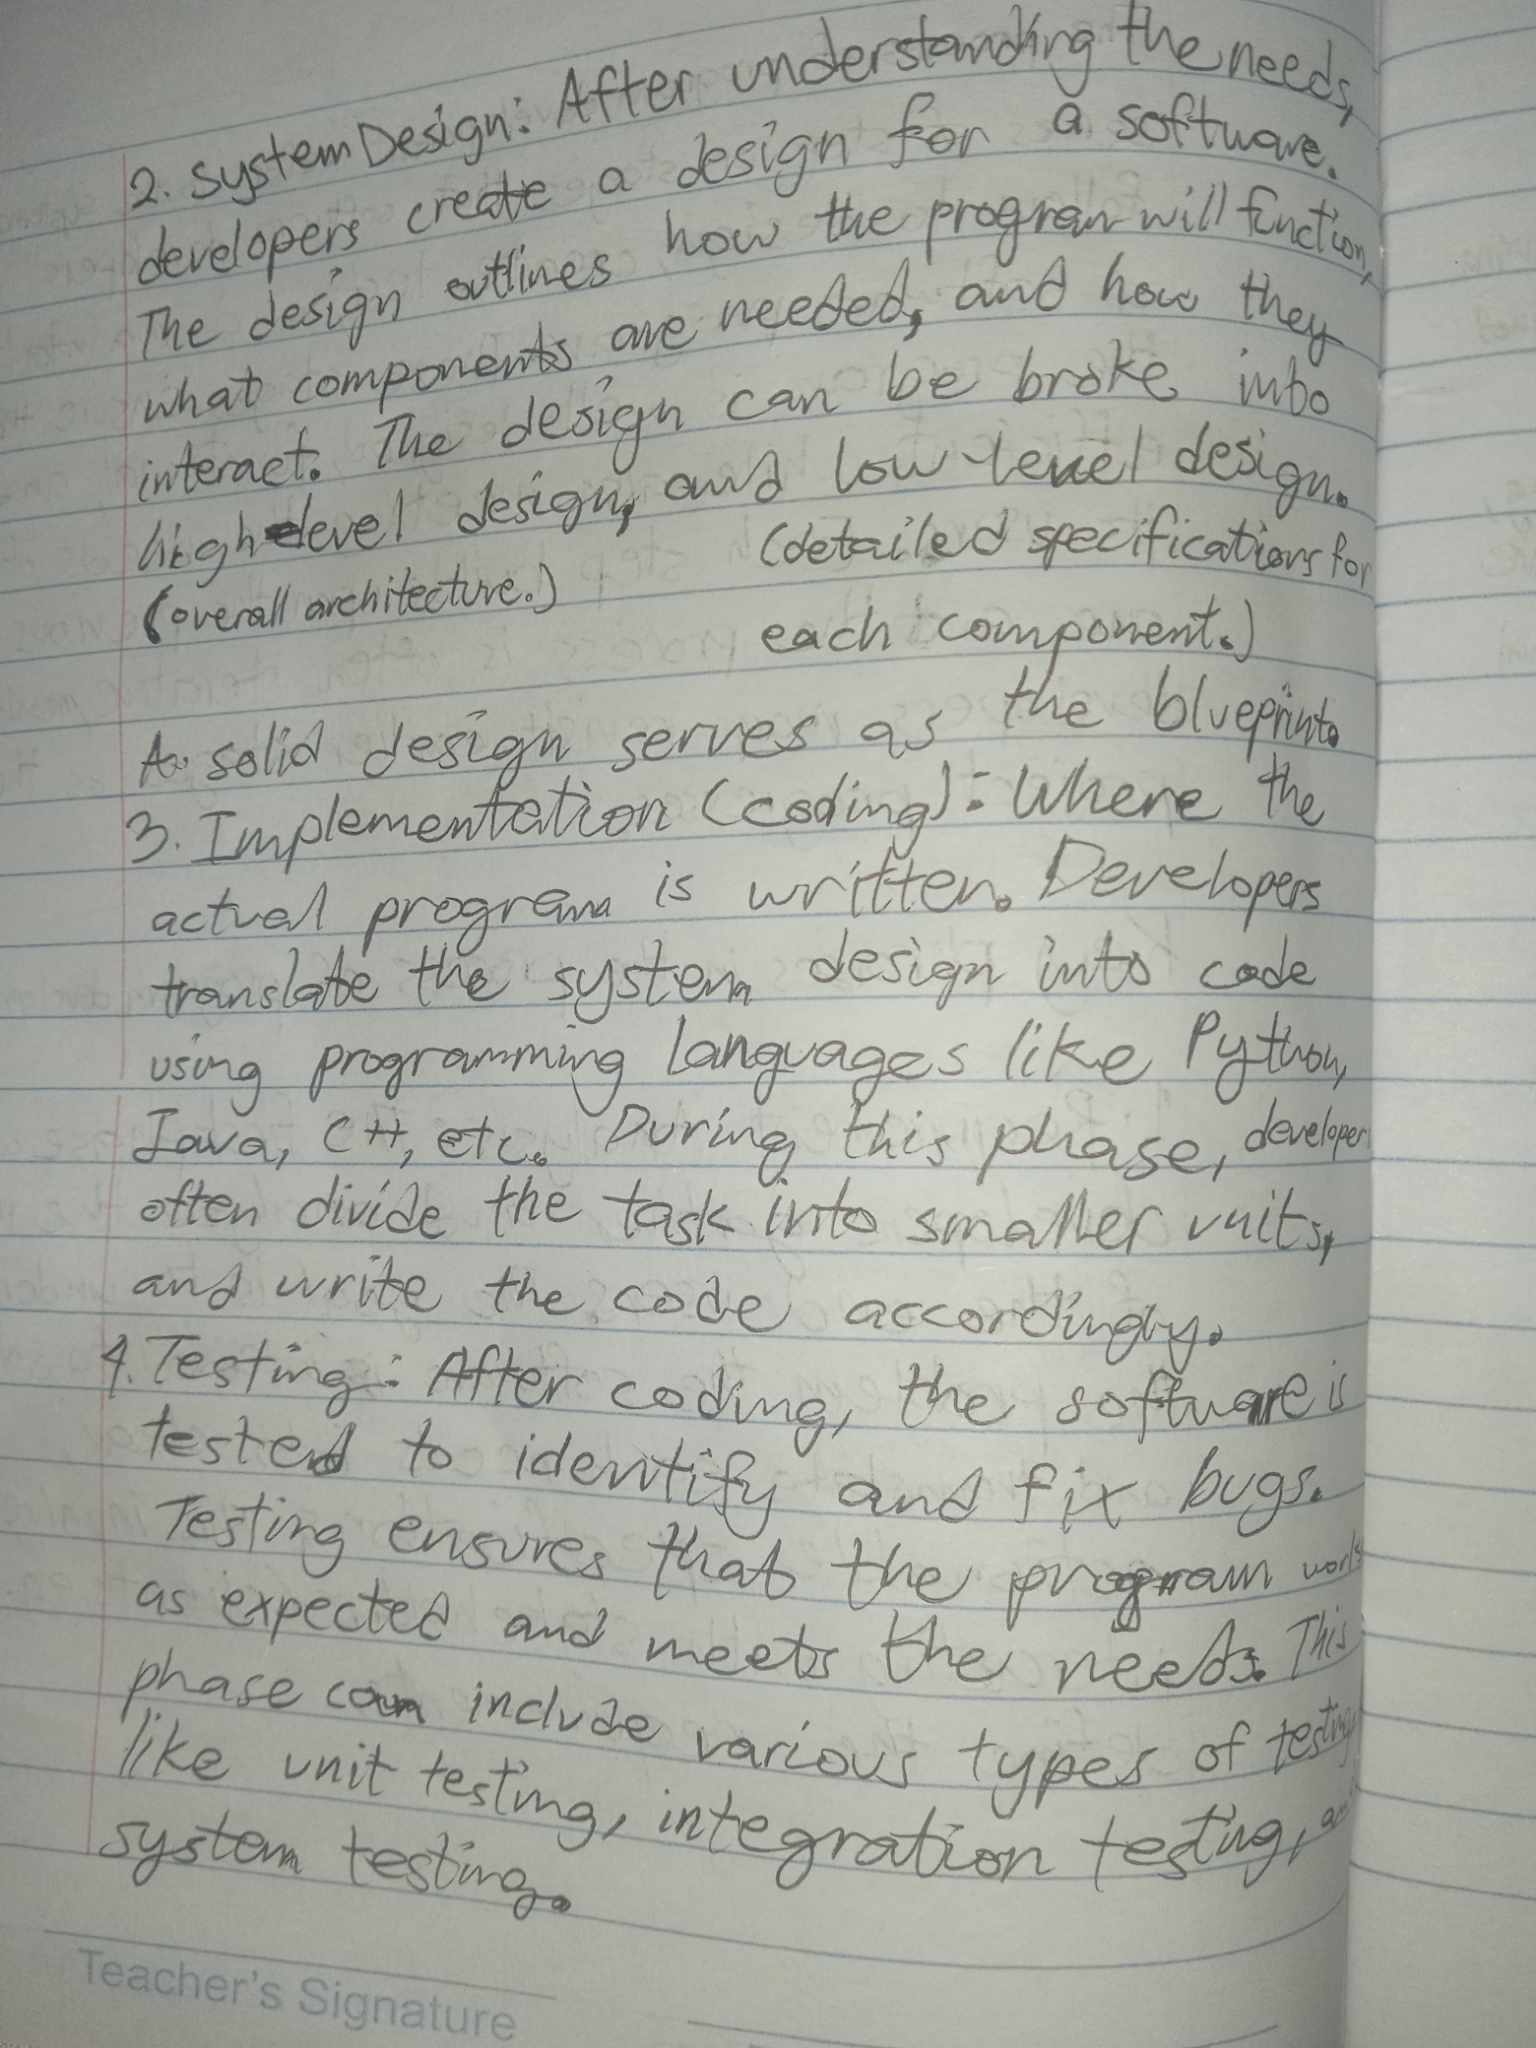 2. System Design: After understanding the needs,
developers create a design for a software.
The design outlines how the program will function,
what components are needed, and how they
interact. The design can be broke into
high-level design, and low-level design.
(overall architecture.) (detailed specifications for
each component.)
A solid design serves as the blueprint.
3. Implementation (coding): Where the
actual program is written. Developers
translate the system design into code
using programming languages like Python,
Java, C++, etc. During this phase, developer
often divide the task into smaller units,
and write the code accordingly.
4. Testing: After coding, the software is
tested to identify and fix bugs.
Testing ensures that the program works
as expected and meets the needs. This
phase can include various types of testing
like unit testing, integration testing, and
system testing.
Teacher's Signature